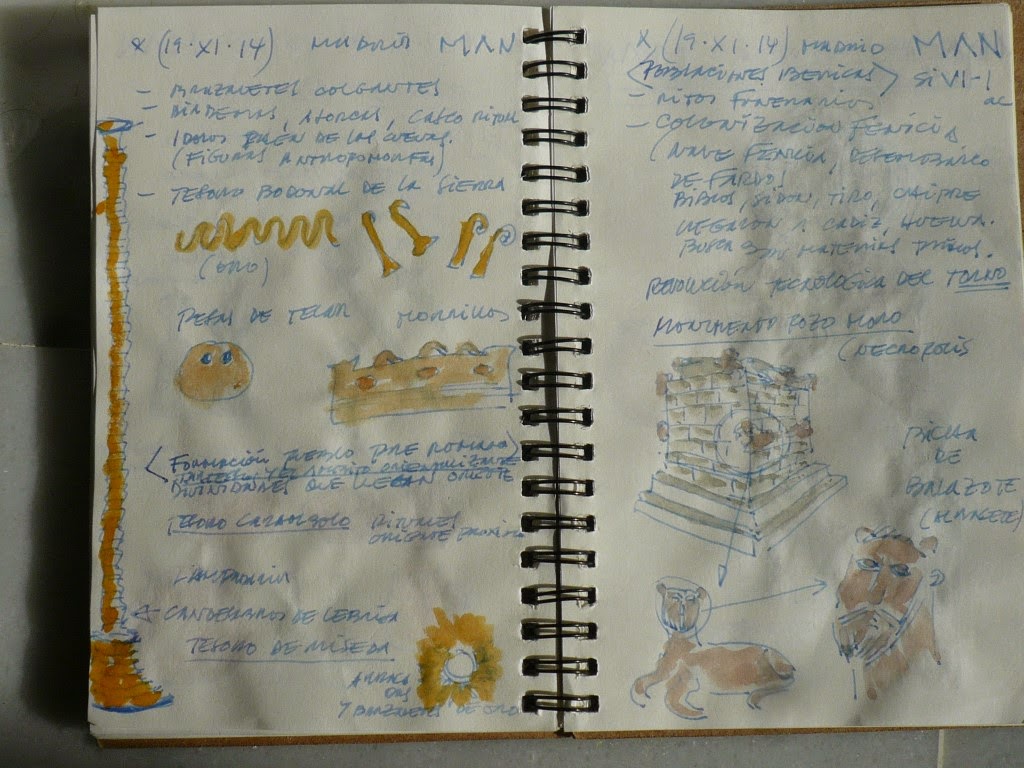 X (19·XI·14) MADRID MAN
- BRAZALETES COLGANTES
- DIADEMAS, ATORCAS, CASCO RITUAL
- IDOLOS DE LAS CUEVAS.
(FIGURAS ANTROPOMORFAS)
- TESORO BODONAL DE LA SIERRA
(ORO)
PESAS DE TELAR MORRILLOS
FORMACIÓN PUEBLO PRE ROMANO
DIVINIDADES QUE LLEGAN ORIENTE
TESORO CARAMBOLO RITUALES
ORIENTE
LAMPARILLA
CANDELABROS DE LEBRIJA
TESORO DE ALISEDA
Y BRAZALETES DE ORO
X (19·XI·14) MADRID MAN
<POBLACIONES IBERICAS> S. VI-I
aC
- RITOS FUNERARIOS
- COLONIZACION FENICIA
(NAVE FENICIA,
DE FARDOS
BIBLOS, SIDON, TIRO, CHIPRE
LLEGARON A CADIZ, HUELVA.
BUSCANDO MATERIAS PRIMAS.
REVOLUCIÓN TECNOLOGICA DEL TORNO
MONUMENTO POZO MORO
(NECROPOLIS
BICHA
DE
BALAZOTE
(ALBACETE)